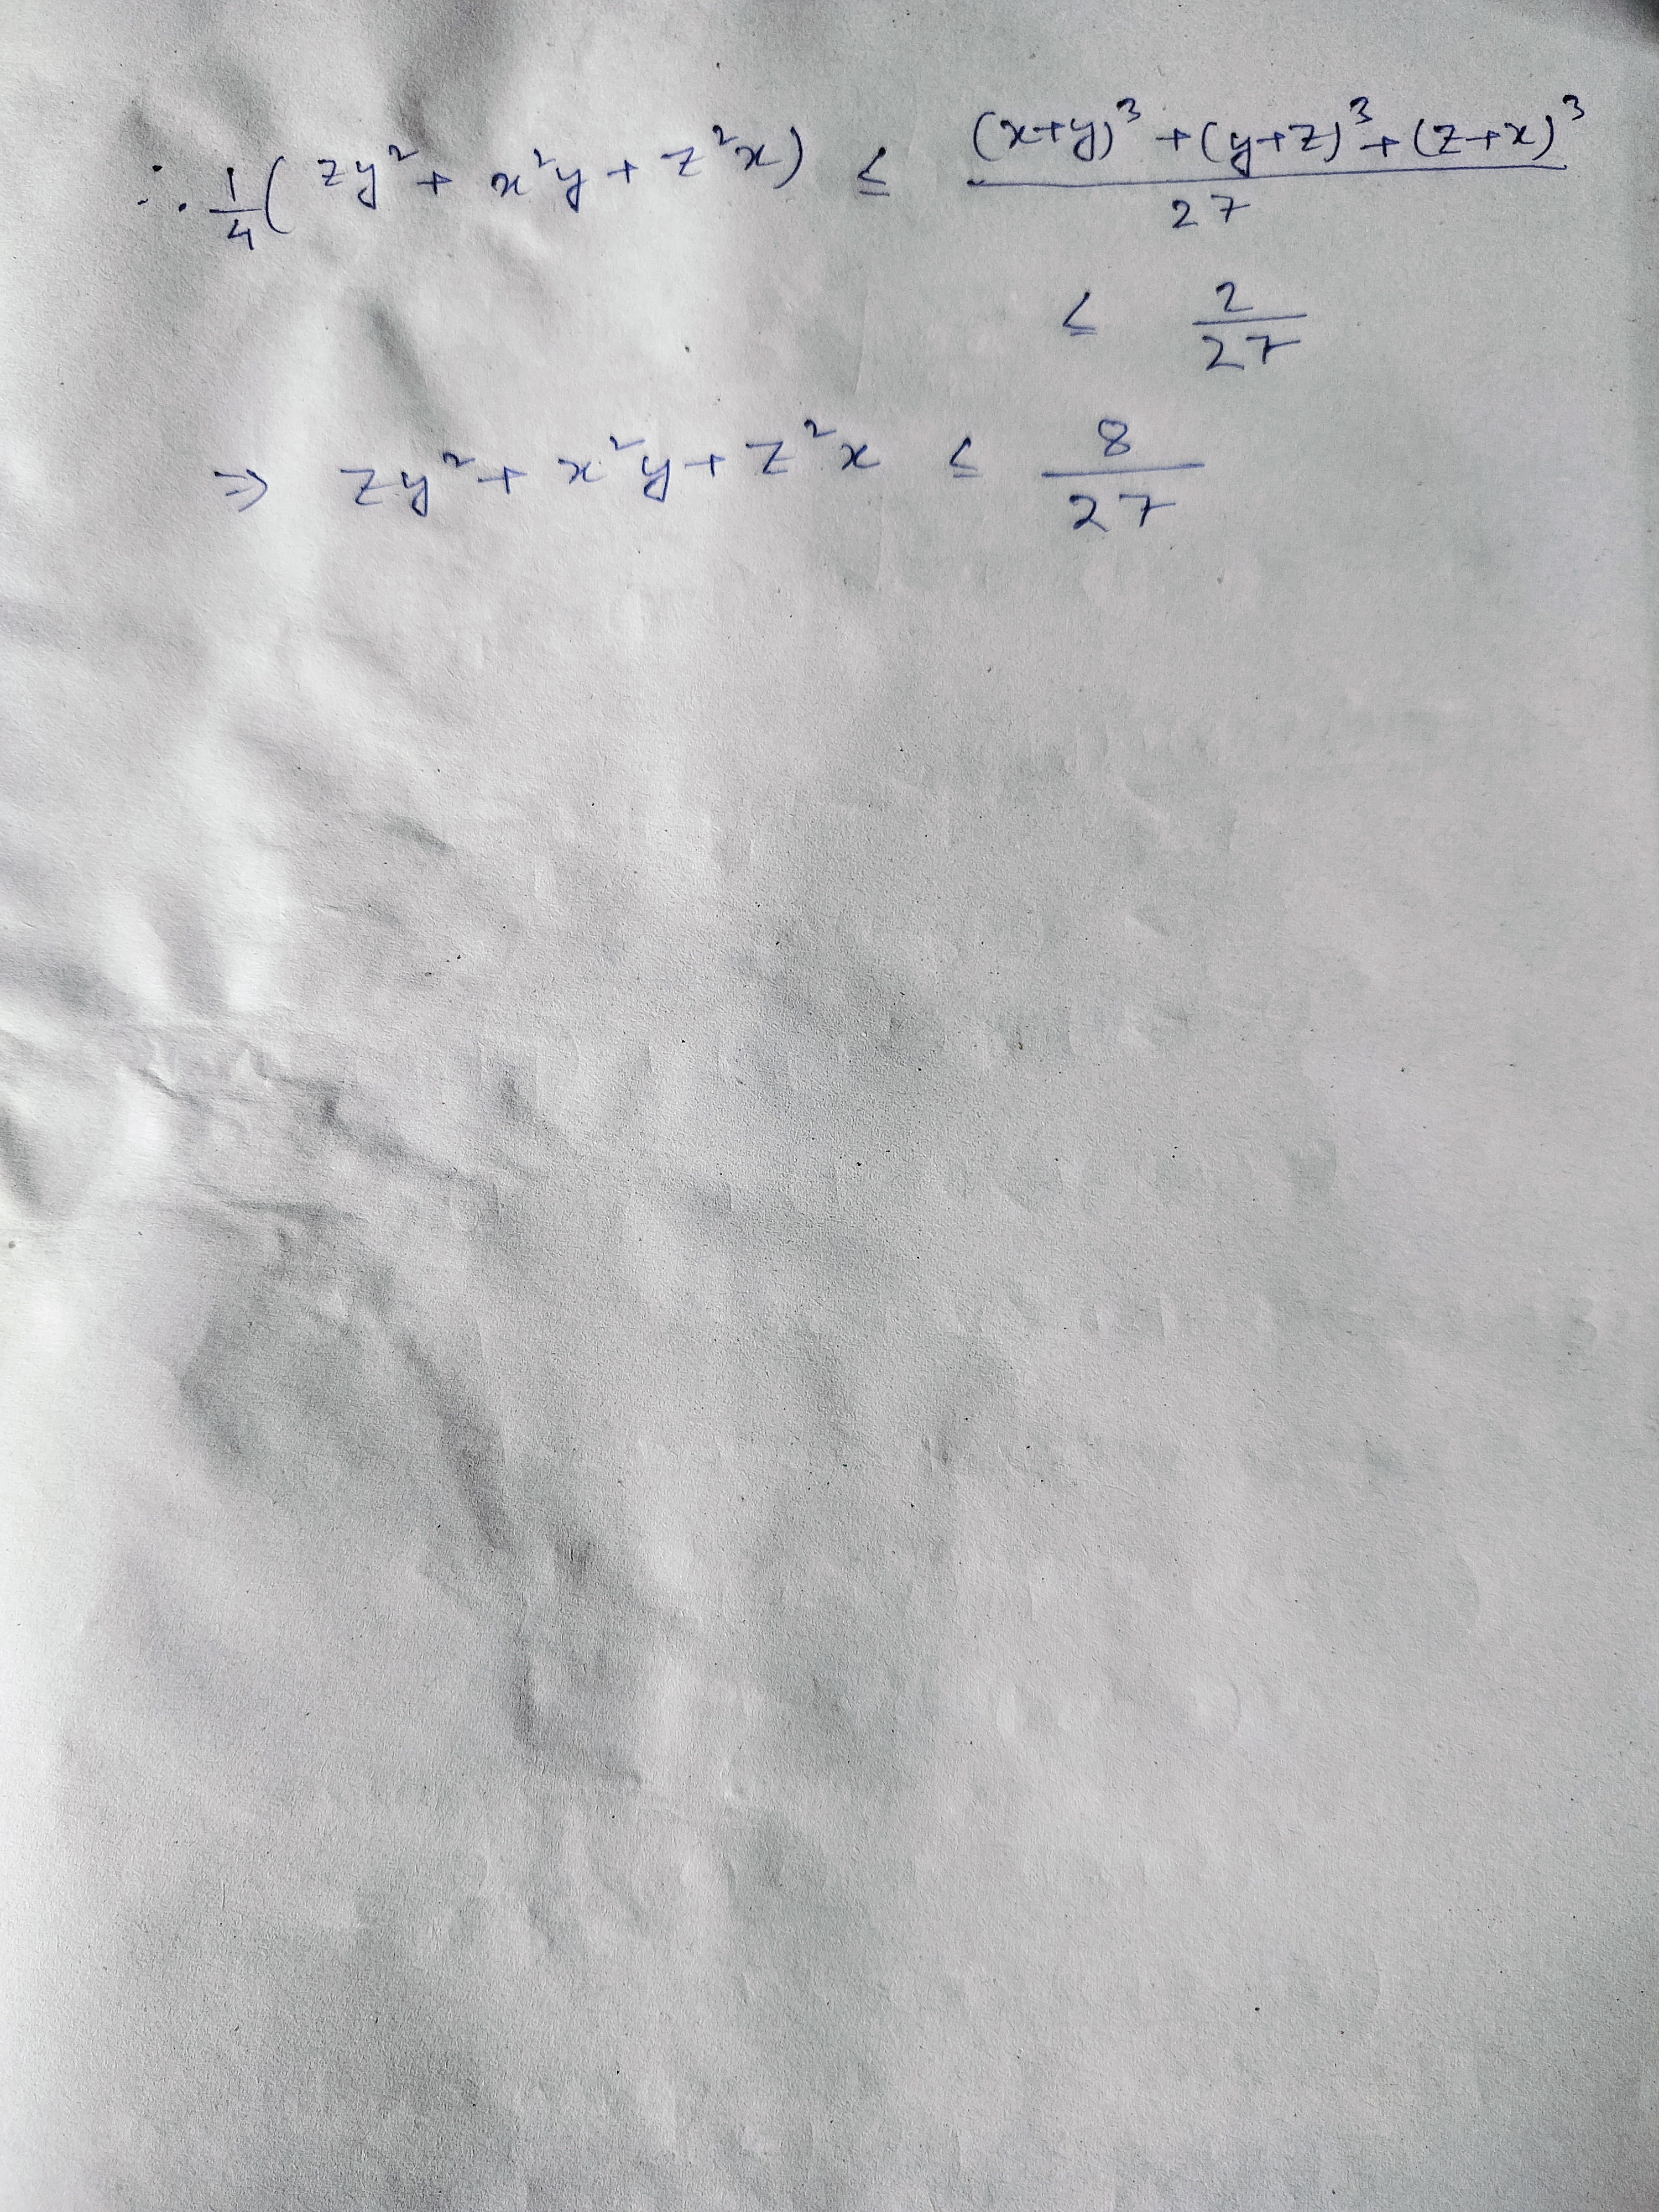 ∴ 1/4 ( zy² + x²y + z²x ) ≤ ((x+y)³ + (y+z)³ + (z+x)³)/27
≤ 2/27
⇒ zy² + x²y + z²x ≤ 8/27